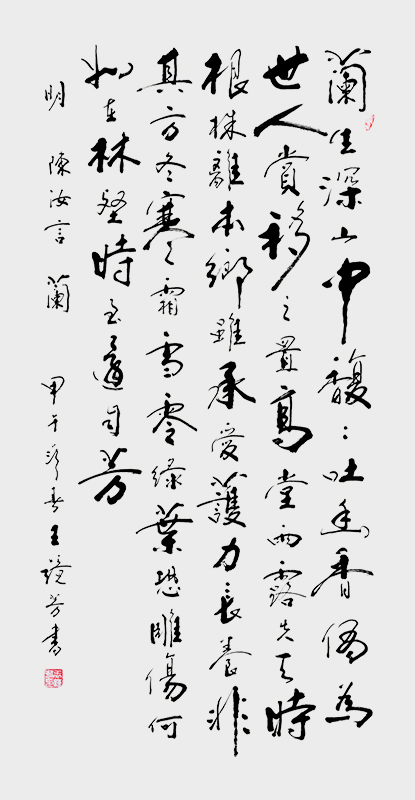 蘭生深山中馥〻吐幽香偶為
世人賞移之置高堂雨露失天時
根株離本鄉雖承愛護力長養非
其方冬寒霜雪零綠葉恐雕傷何
如在林壑時至還自芳
明 陳汝言 蘭 甲午春王鏡芳書